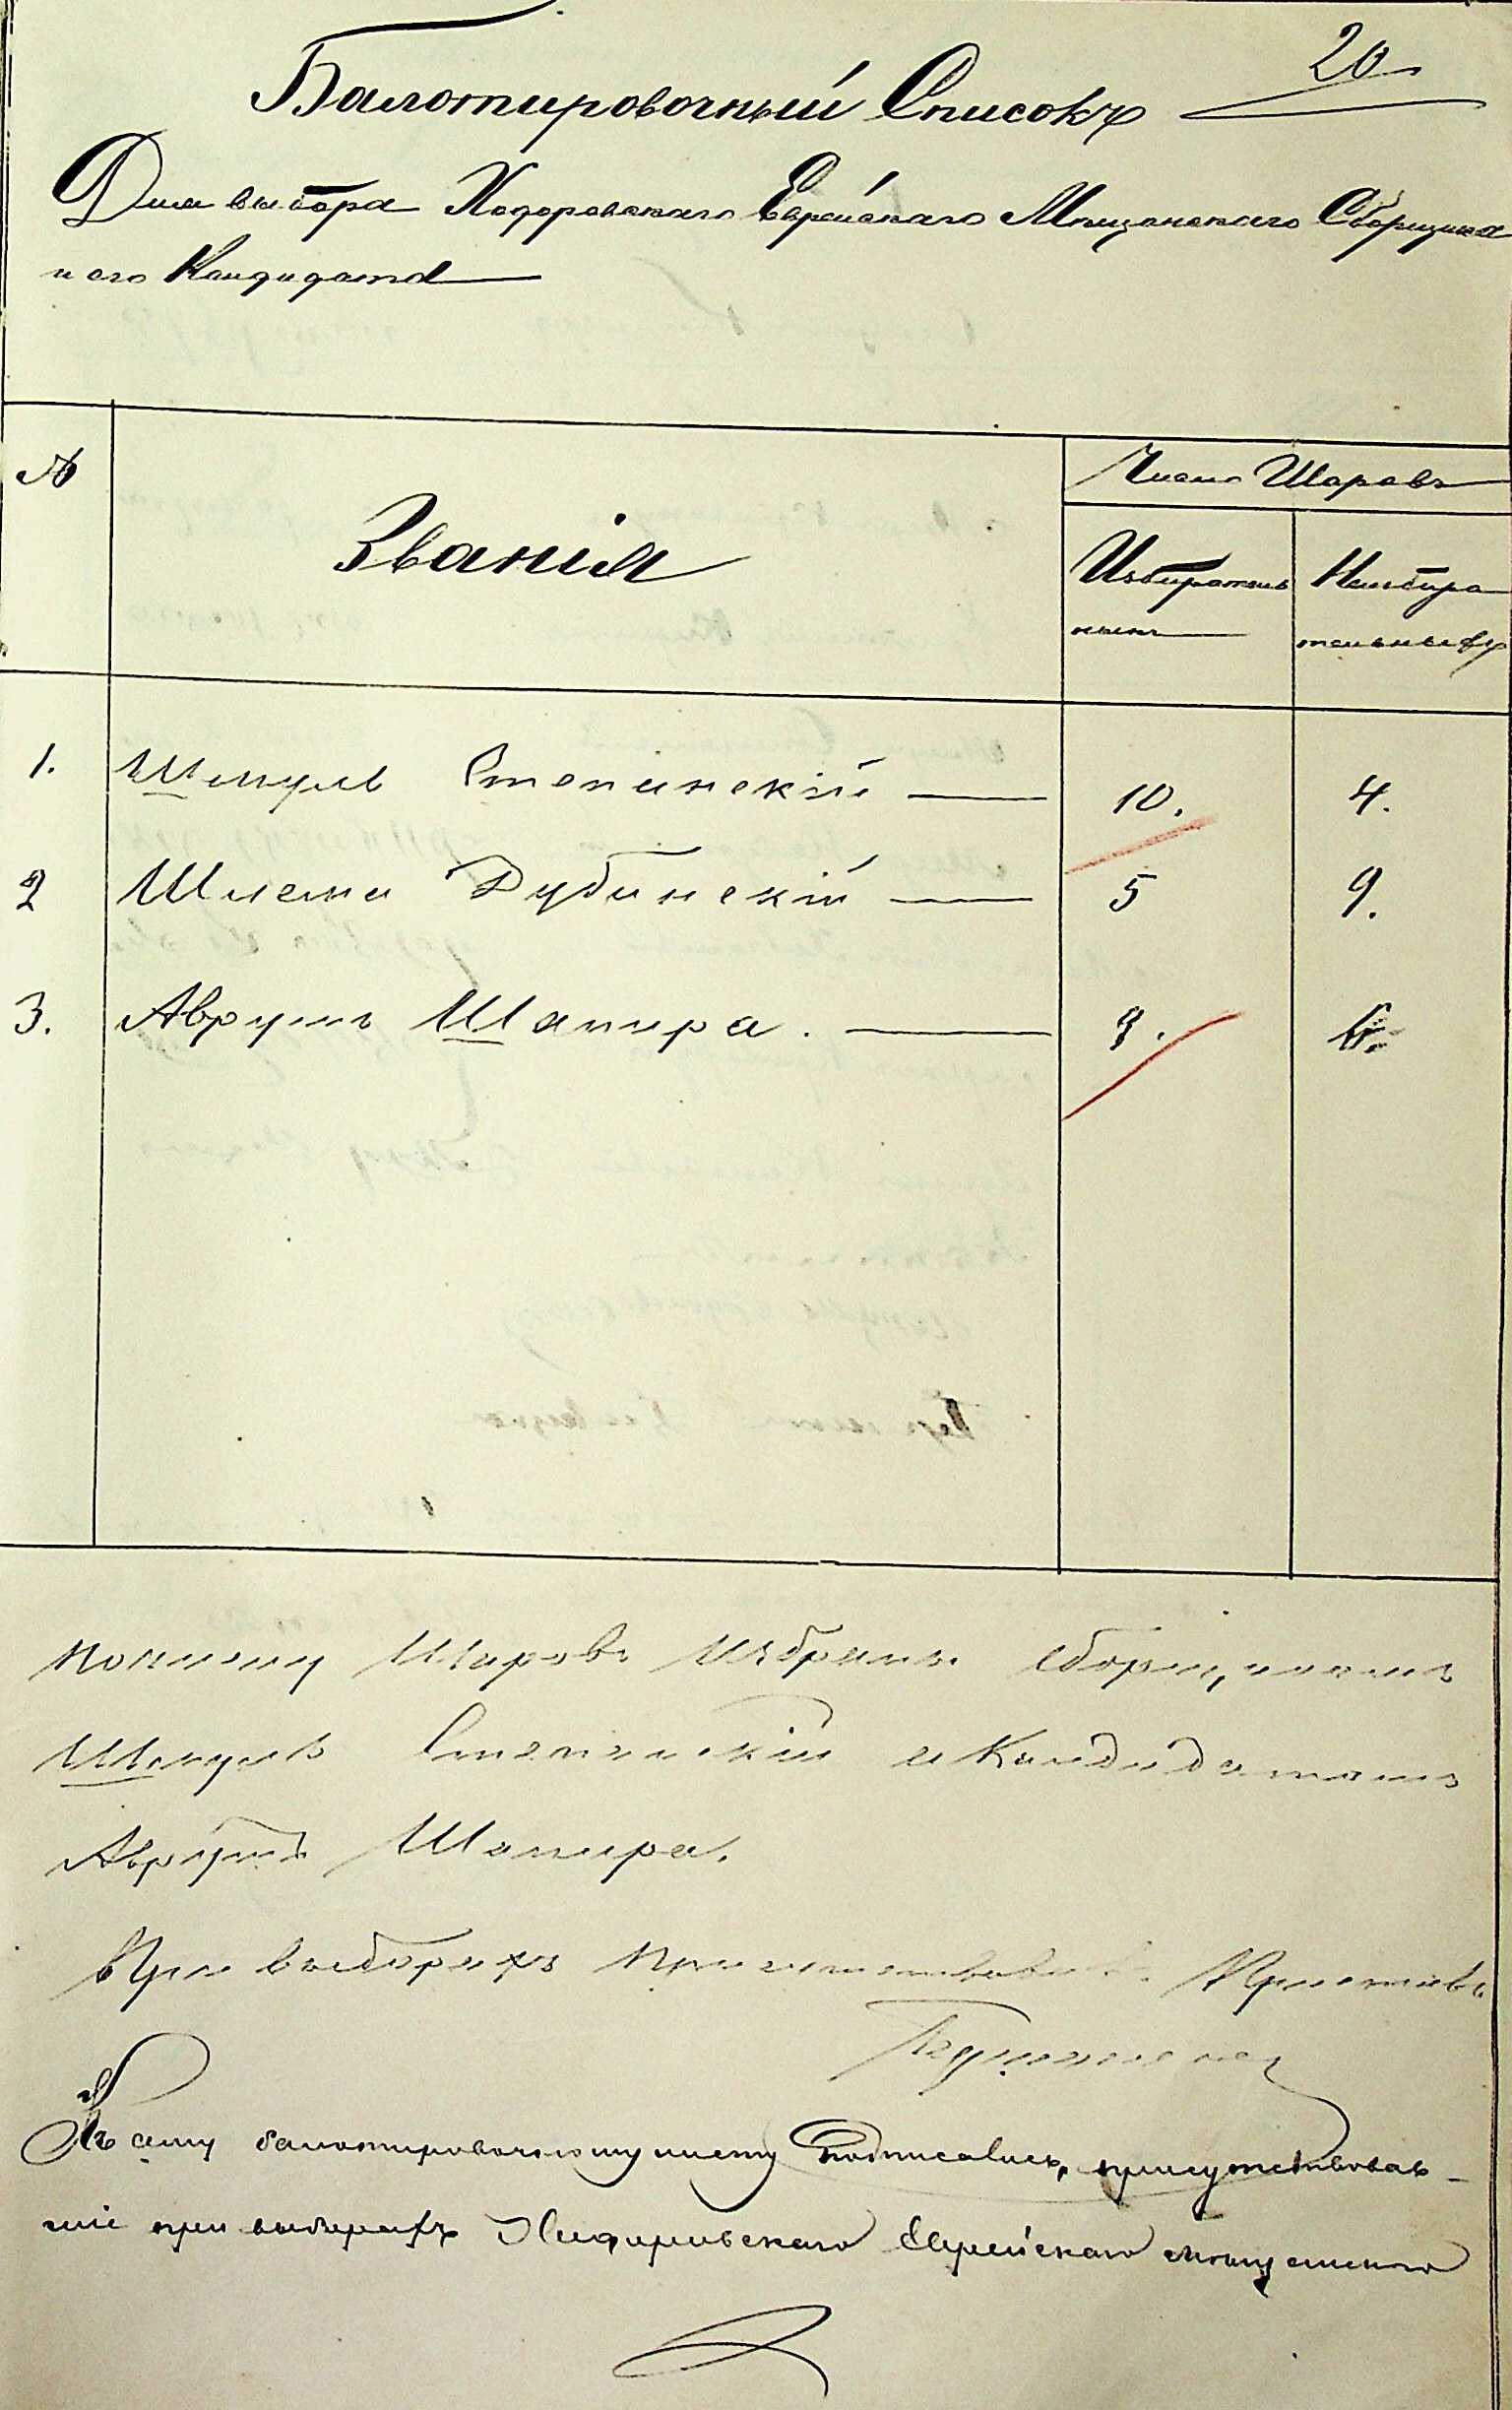 20
Балотировочный Списокъ
Для выбора Ходоровскаго Еврейскаго Мѣщанскаго Сборщика
и его Кандидата
№
Званія
Число Шаровъ
Избиратель
ныхъ
Неизбира
тельныхъ
1. Шмуль Степинскій 10. 4.
2 Шлема Дубинскій 5 9.
3. Аврумъ Шапира.
Шаровъ Избранъ сборщикомъ
Шмуль Степинскій и Кандидатомъ
Аврумъ Шапира.
При выборахъ Приставъ
Къ сему балотировочному листу подписались, присутствовав-
шіе при выборахъ Ходоровскаго Еврейскаго мѣщанскаго